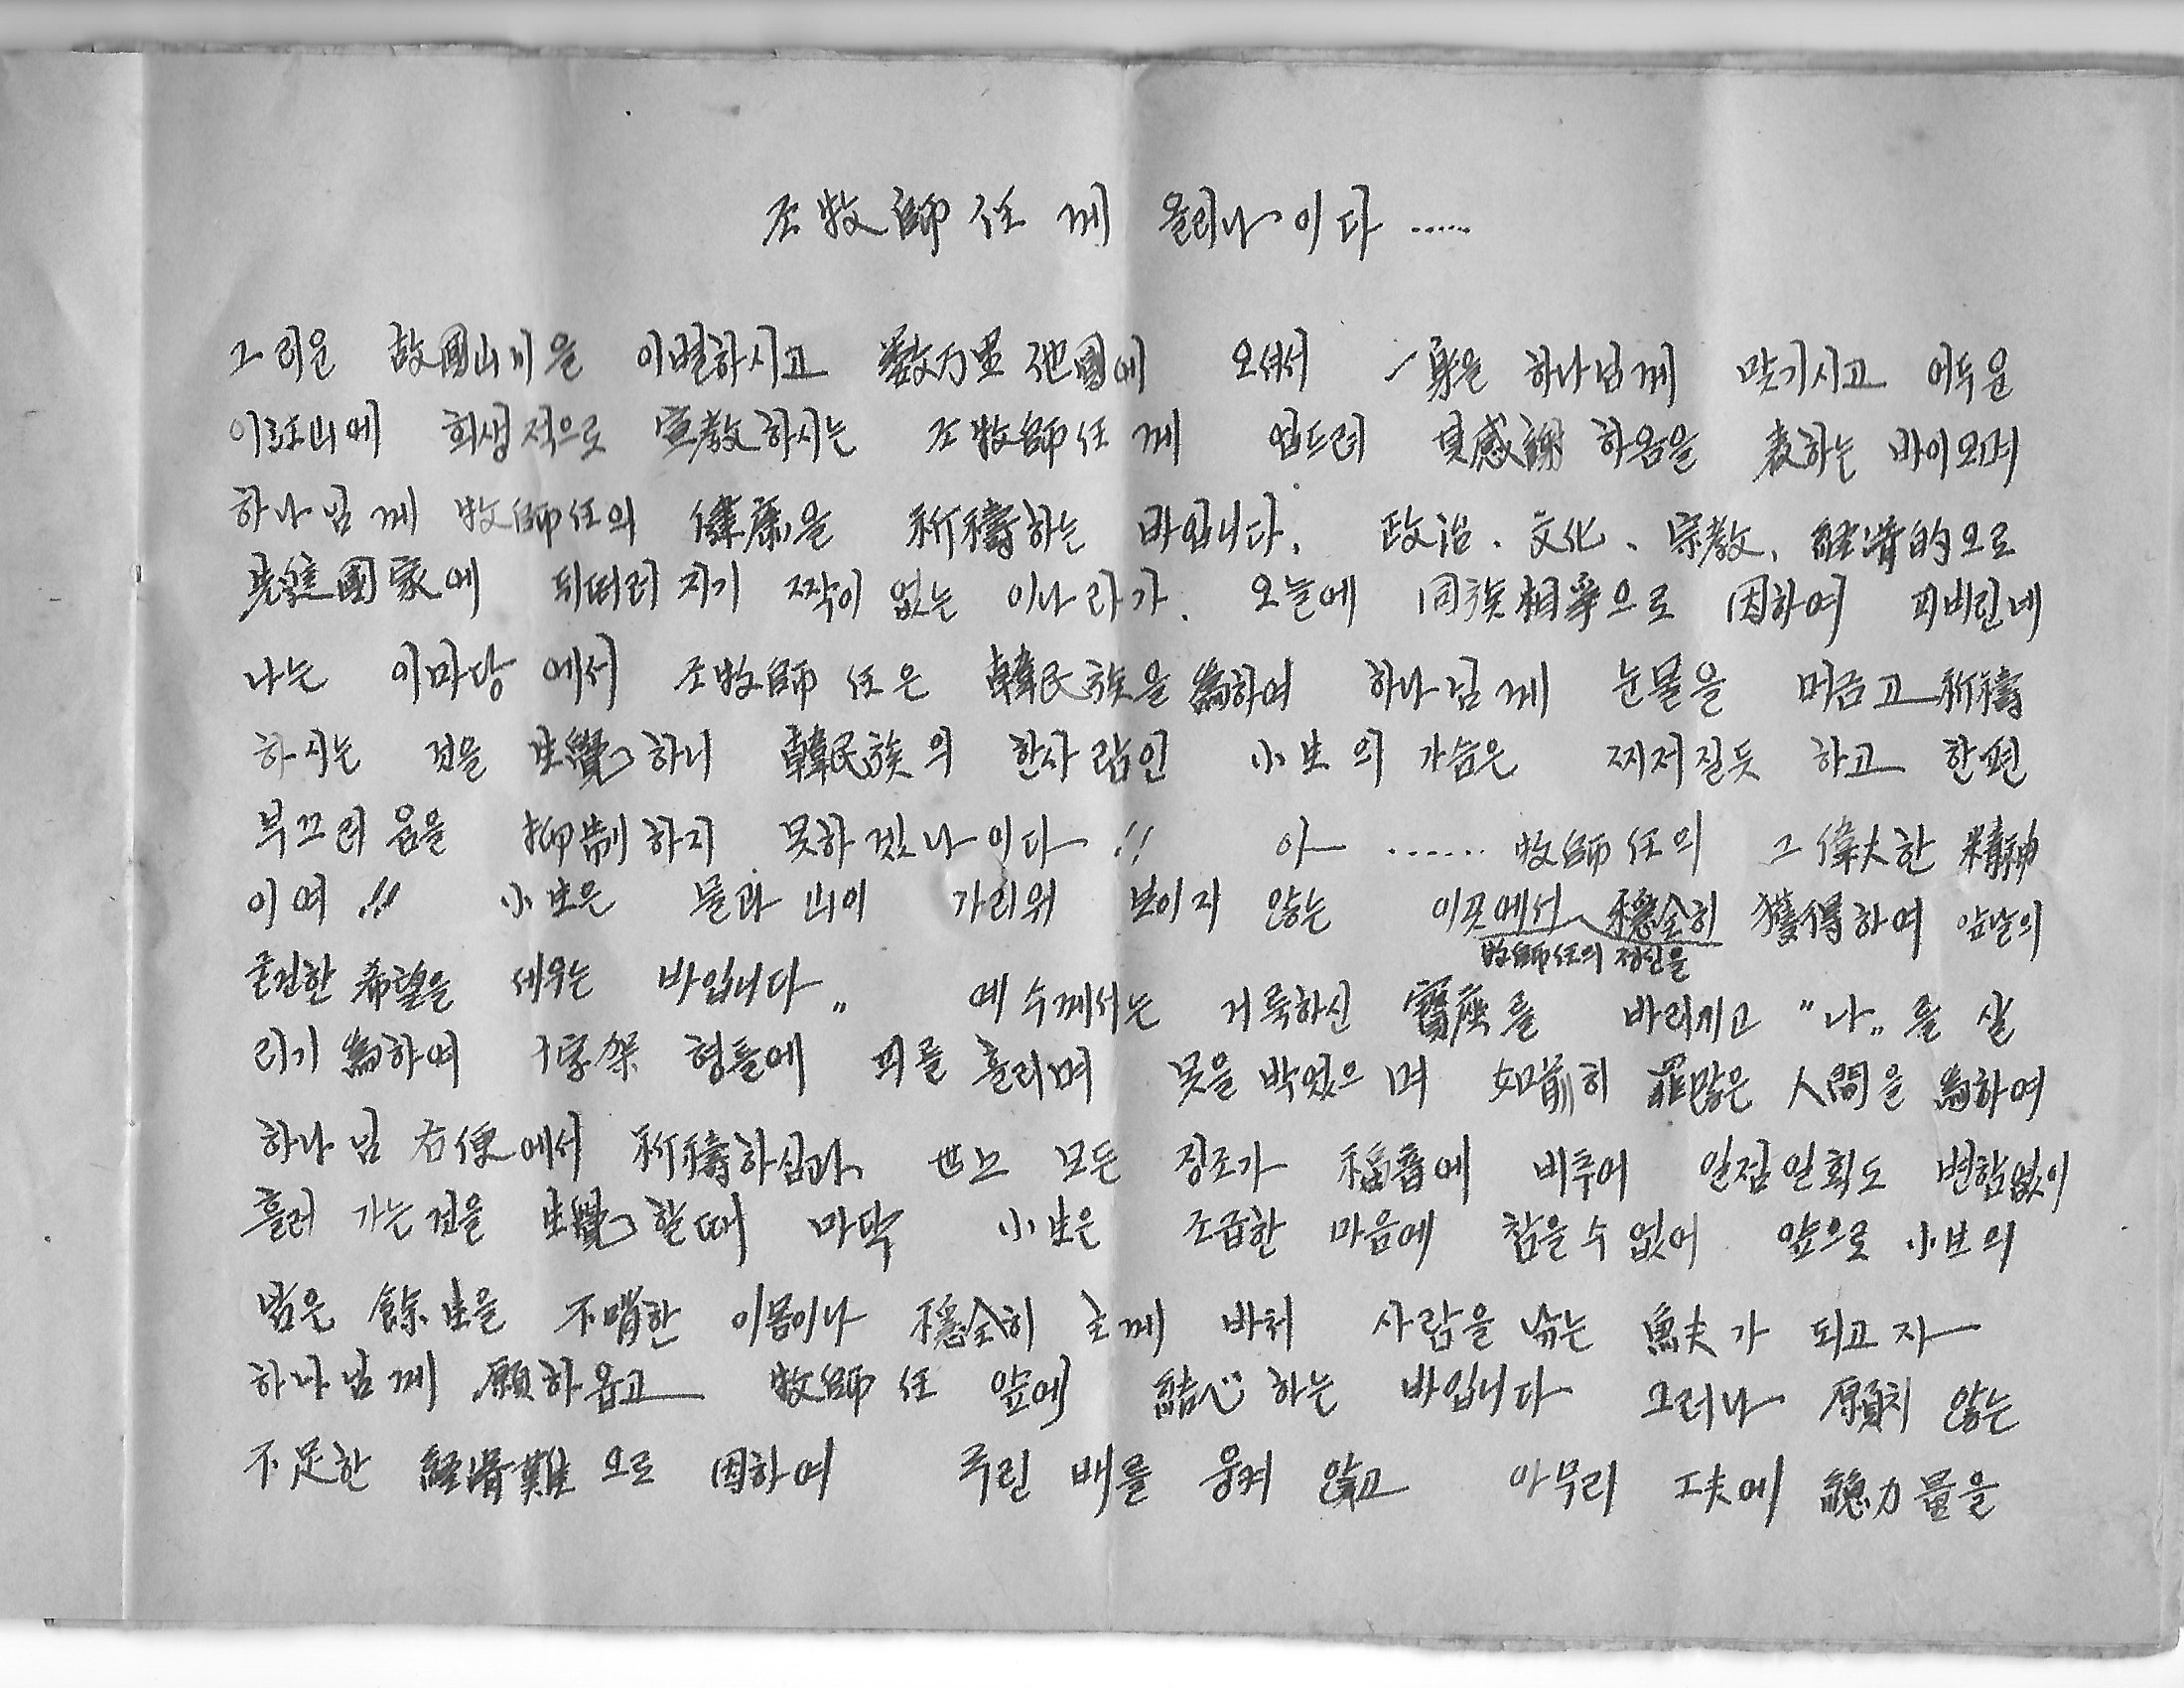 조牧師任 께 올리나이다 ......
그리운 故國山川을 이별하시고 數万里 他國에 오셔서 一身을 하나님께 맞기시고 어두운
이江山에 희생적으로 宣敎하시는 조牧師任께 엎드려 感謝하옴을 表하는 바이오며
하나님께 牧師任의 健康을 祈禱하는 바입니다. 政治. 文化、宗敎、経済的으로
先進國家에 뒤떠러지기 짝이 없는 이나라가. 오늘에 同族相爭으로 因하여 피비린네
나는 이마당에서 조牧師任은 韓民族을 爲하여 하나님께 눈물을 머금고 祈禱
하시는 것을 生覺하니 韓民族의 한사람인 小生의 가슴은 찌저질듯 하고 한편
부끄러움을 抑制하지 못하겠나이다 !! 아 ...... 牧師任의 그 偉大한 精神
이여 !!! 小生은 물과 山이 가리워 보이지 않는 이곳에서 穩全히 獲得하여 앞날의
牧師任의 정신을
굳건한 希望을 세우는 바입니다 〃 예수께서는 거룩하신 寶座를 바리시고 "나〃를 살
리기 爲하여 十字架 형틀에 피를 흘리며 못을 박었으며 如前히 罪많은 人間을 爲하여
하나님 右便에서 祈禱하심과、 世上 모든 징조가 福音에 비추어 일점일획도 변함없이
흘러가는 것을 生覺할때 마닥 小生은 조급한 마음에 참을수 없어 앞으로 小生의
남은 餘生을 不肖한 이몸이나 穩全히 主께 바처 사람을 낚는 漁夫가 되고자
하나님께 願하옵고 牧師任 앞에 結心하는 바입니다 그러나 願치 않는
不足한 経済難으로 因하여 주린 배를 웅켜 않고 아무리 工夫에 總力量을